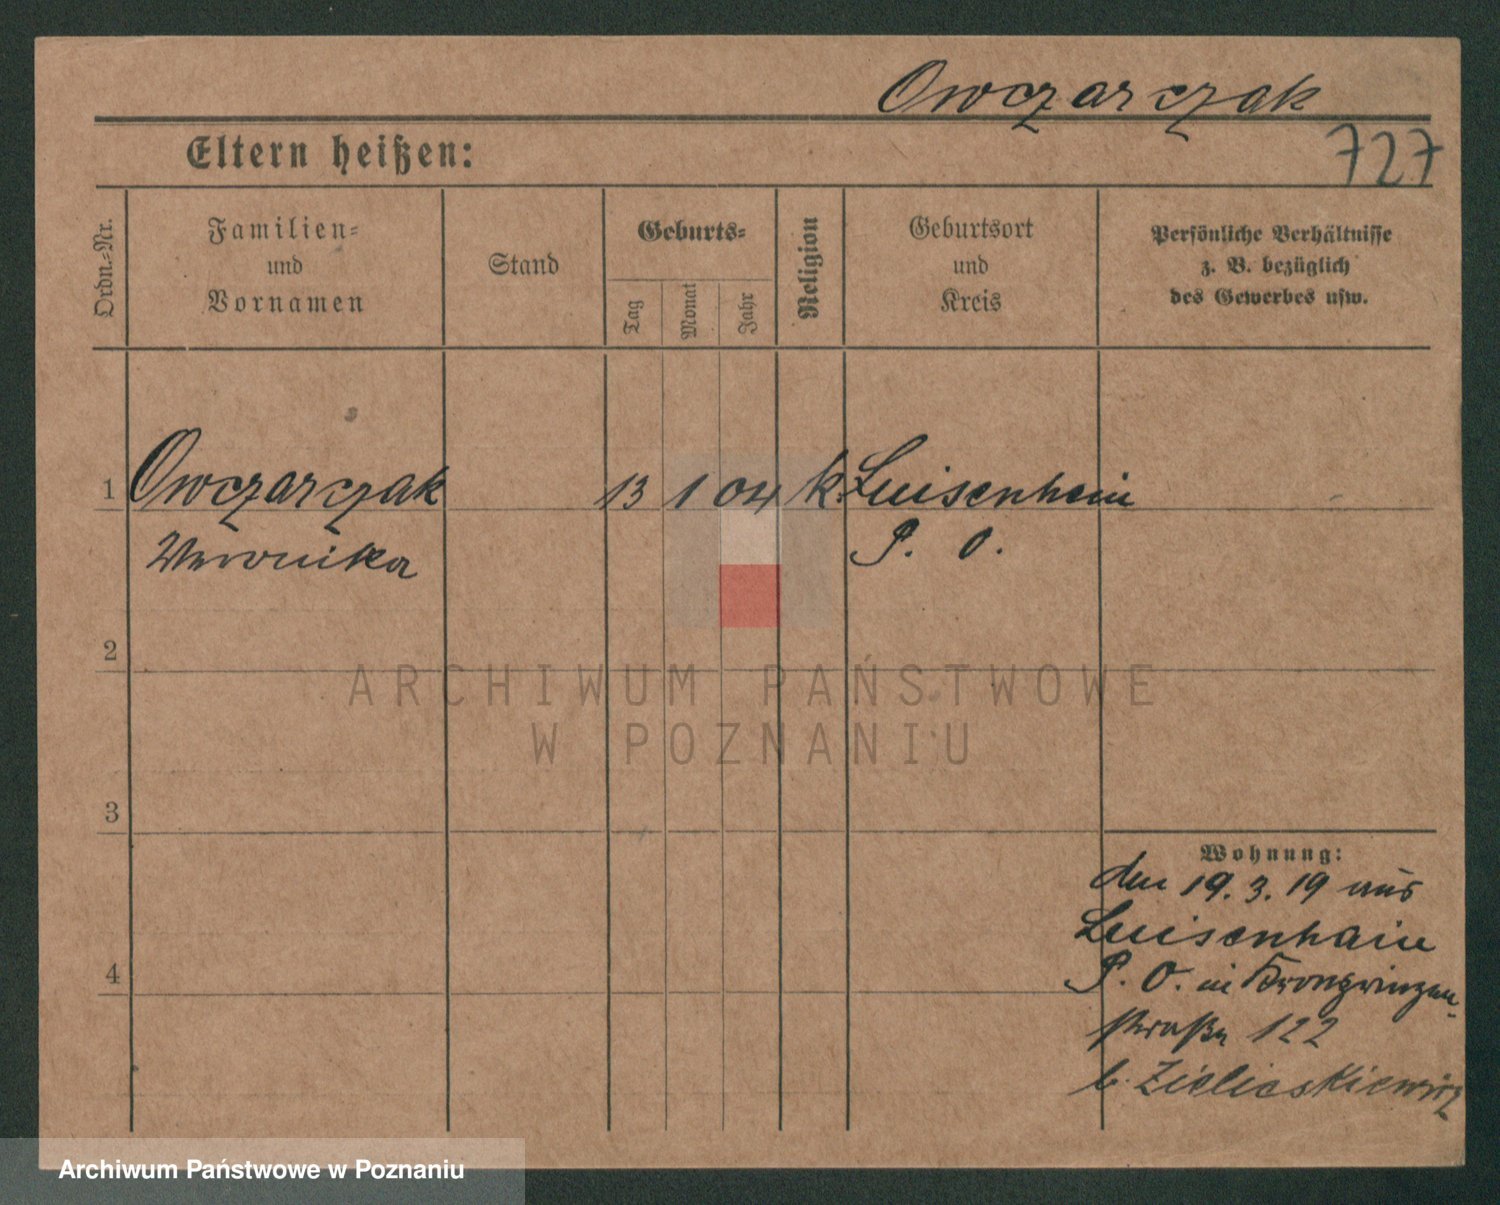 Owczarczak
727
Eltern heißen:
Ordn.=Nr.
Familien=
und
Vornamen
Stand
Geburts=
Tag
Monat
Jahr
Religion
Geburtsort
und
Kreis
Persönliche Verhältnisse
z. B. bezüglich
des Gewerbes usw.
1 Owczarczak 13 1 04 k. Luisenhein
Veronika P. O.
2
3
4
Wohnung:
den 19.3.19 aus
Luisenhain
P. O. in Kronprinzen-
straße 122
b.
ARCHIWUM PAŃSTWOWE
W POZNANIU
Archiwum Państwowe w Poznaniu